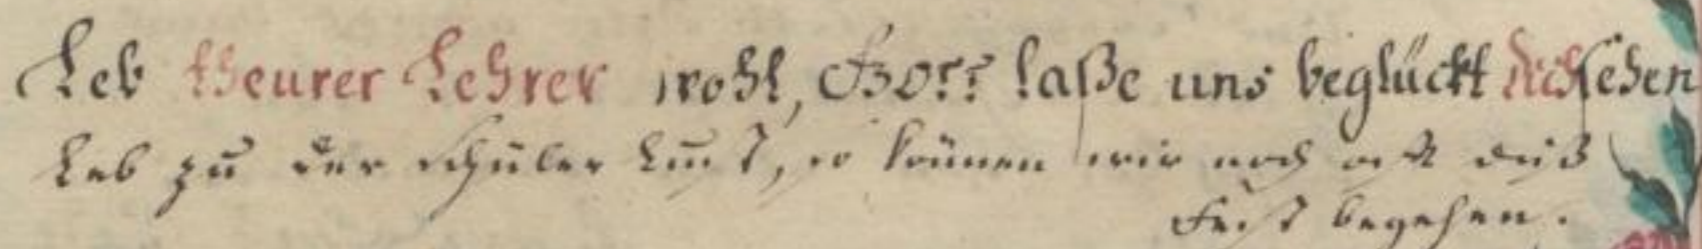 Leb theurer Lehrer wohl, Gott laße uns beglückt dich sehen
Leb zu der Schüler Lust, so können wir noch oft diß
Fest begehen.